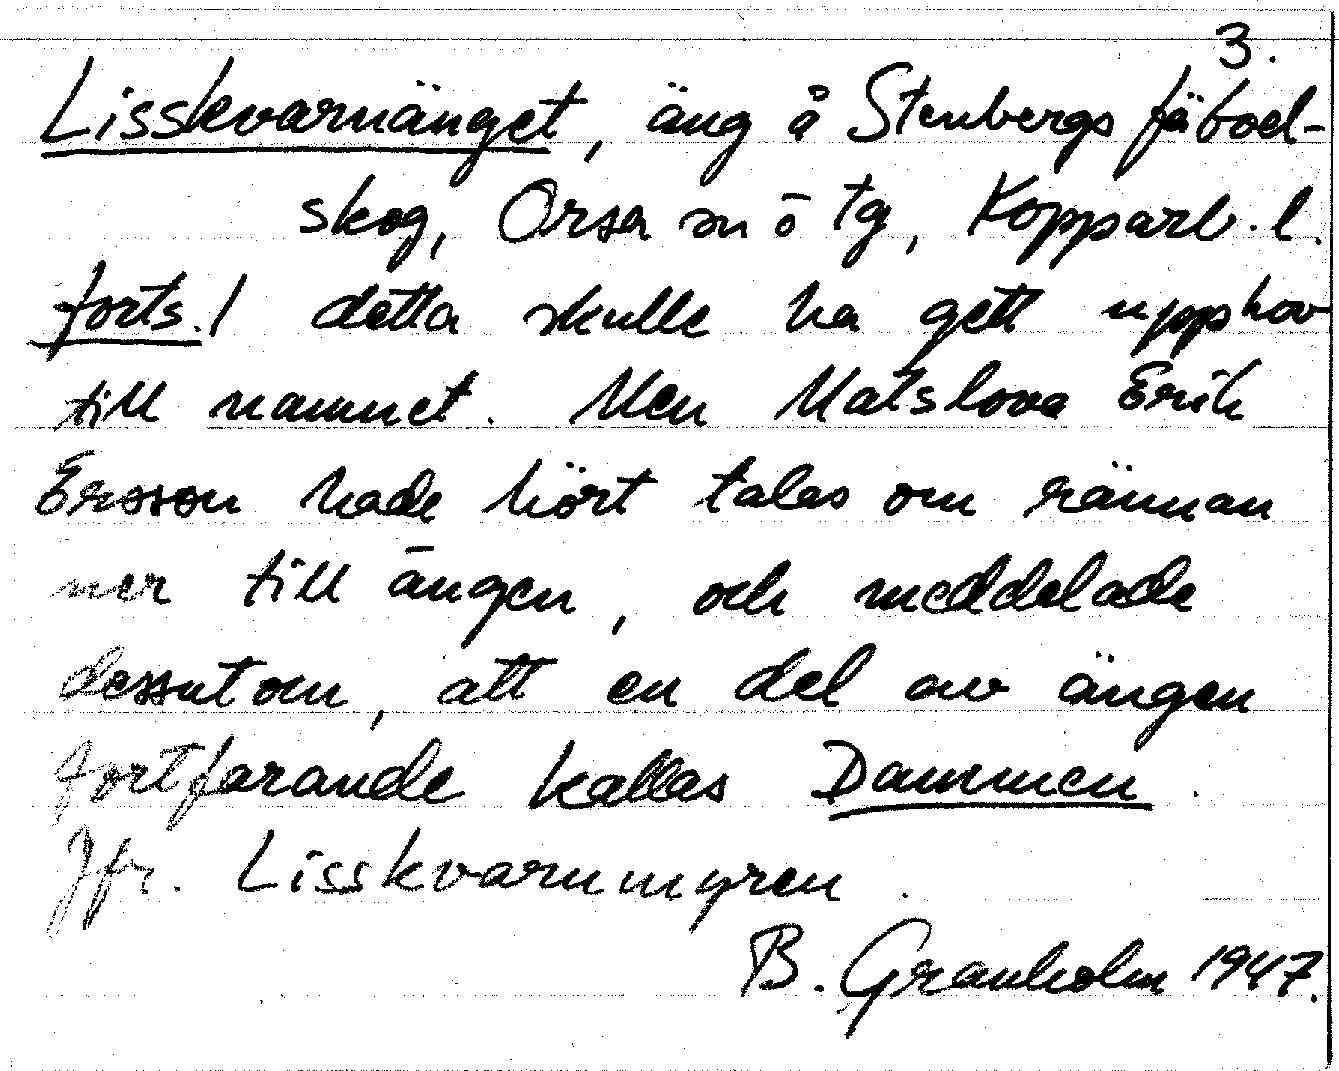 3.
Lisskvarnänget, äng å Stenbergs fäbod-
skog, Orsa sn ö tg, Kopparb. l.
forts./ detta skulle ha gett upphov
till namnet. Men Matslova Erik
Ersson hade hört talas om rännan
ner till ängen, och meddelade
dessutom, att en del av ängen
fortfarande kallas Dammen.
Jfr. Lisskvarnmyren.
B. Granholm 1947.